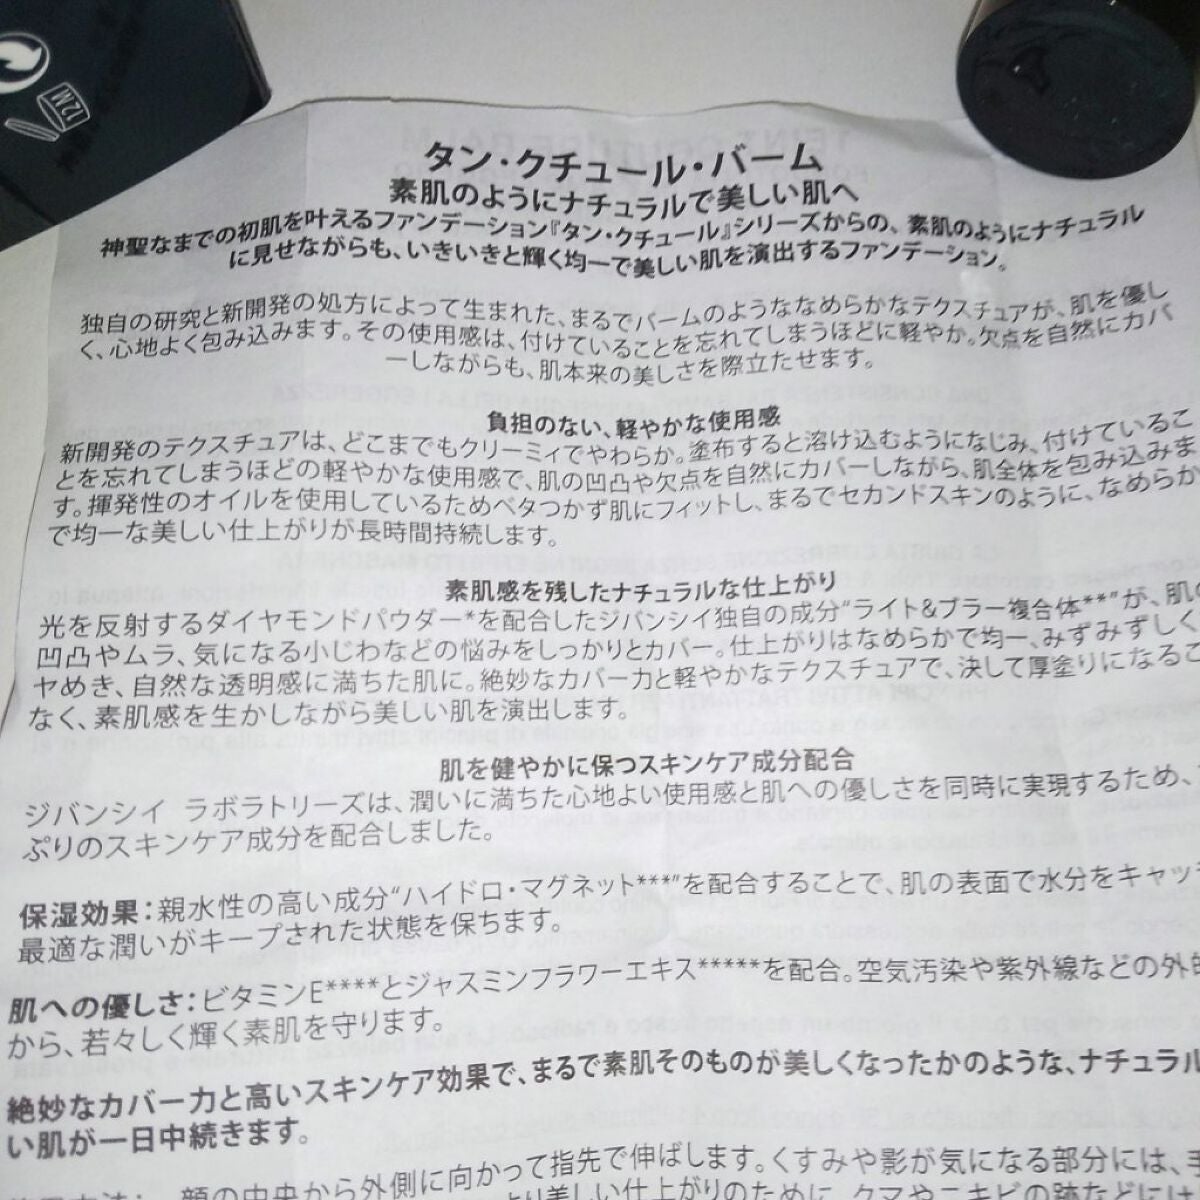 12M
タン・クチュール・バーム
素肌のようにナチュラルで美しい肌へ
神聖なまでの初肌を叶えるファンデーション『タン・クチュール』シリーズからの、素肌のようにナチュラル
に見せながらも、いきいきと輝く均一で美しい肌を演出するファンデーション。
独自の研究と新開発の処方によって生まれた、まるでバームのようななめらかなテクスチュアが、肌を優し
く、心地よく包み込みます。その使用感は、付けていることを忘れてしまうほどに軽やか。欠点を自然にカバ
ーしながらも、肌本来の美しさを際立たせます。
負担のない、軽やかな使用感
新開発のテクスチュアは、どこまでもクリーミィでやわらか。塗布すると溶け込むようになじみ、付けているこ
とを忘れてしまうほどの軽やかな使用感で、肌の凹凸や欠点を自然にカバーしながら、肌全体を包み込みま
す。揮発性のオイルを使用しているためベタつかず肌にフィットし、まるでセカンドスキンのように、なめらか
で均一な美しい仕上がりが長時間持続します。
素肌感を残したナチュラルな仕上がり
光を反射するダイヤモンドパウダー*を配合したジバンシイ独自の成分“ライト&ブラー複合体**”が、肌の
凹凸やムラ、気になる小じわなどの悩みをしっかりとカバー。仕上がりはなめらかで均一、みずみずしく
ヤめき、自然な透明感に満ちた肌に。絶妙なカバー力と軽やかなテクスチュアで、決して厚塗りになるこ
なく、素肌感を生かしながら美しい肌を演出します。
肌を健やかに保つスキンケア成分配合
ジバンシイ ラボラトリーズは、潤いに満ちた心地よい使用感と肌への優しさを同時に実現するため、
ぷりのスキンケア成分を配合しました。
保湿効果：親水性の高い成分“ハイドロ・マグネット***”を配合することで、肌の表面で水分をキャッ
最適な潤いがキープされた状態を保ちます。
肌への優しさ：ビタミンE****とジャスミンフラワーエキス*****を配合。空気汚染や紫外線などの外的
から、若々しく輝く素肌を守ります。
絶妙なカバー力と高いスキンケア効果で、まるで素肌そのものが美しくなったかのような、ナチュラル
い肌が一日中続きます。
顔の中央から外側に向かって指先で伸ばします。くすみや影が気になる部分には、
より美しい仕上がりのために、クマやニキビの跡などには